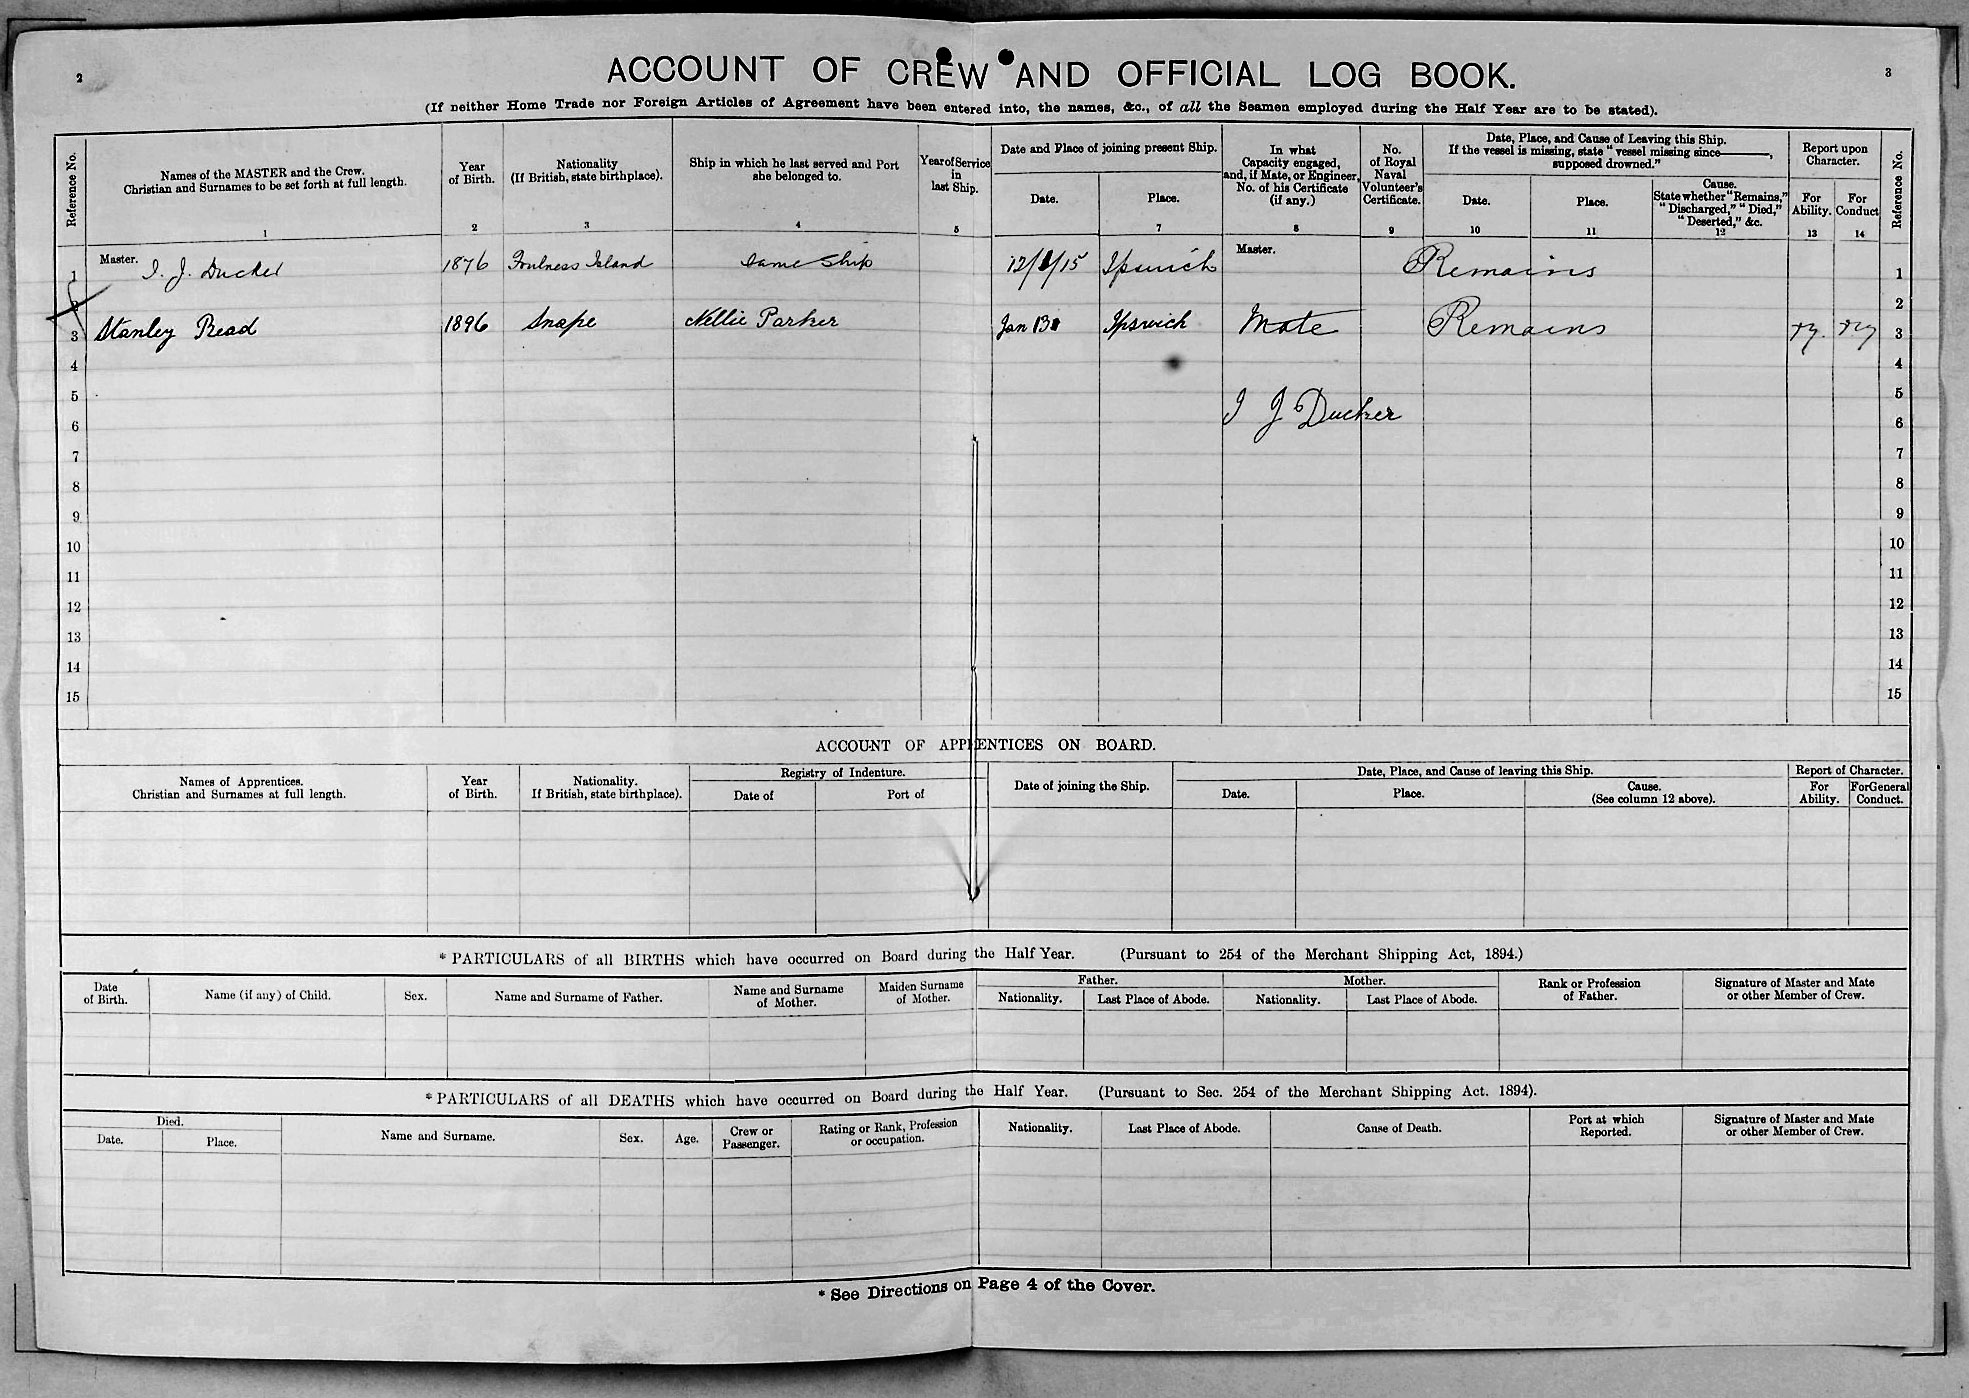 2
3
ACCOUNT OF CREW AND OFFICIAL LOG BOOK.
(If neither Home Trade nor Foreign Articles of Agreement have been entered into, the names, &c., of all the Seamen employed during the Half Year are to be stated).
Reference No.
Names of the MASTER and the Crew.
Christian and Surnames to be set forth at full length.
1
Year
of Birth.
2
Nationality
(If British, state birthplace).
3
Ship in which he last served and Port
she belonged to.
4
Year of Service
in
last Ship.
5
Date and Place of joining present Ship.
Date.
Place.
7
In what
Capacity engaged,
and, if Mate, or Engineer,
No. of his Certificate
(if any.)
8
No.
of Royal
Naval
Volunteer's
Certificate.
9
Date, Place, and Cause of Leaving this Ship.
If the vessel is missing, state "vessel missing since———,
supposed drowned."
Date.
10
Place.
11
Cause.
State whether "Remains,"
"Discharged," "Died,"
"Deserted," &c.
12
Report upon
Character.
For
Ability.
13
For
Conduct
14
Reference No.
1 Master. I. J. Ducker 1876 Foulness Island same ship 12/1/15 Ipswich Master. Remains 1
2 2
3 Stanley Read 1896 Snape Nellie Parker Jan 13 Ipswich Mate Remains 3
4 4
5 5
I J Ducker
6 6
7 7
8 8
9 9
10 10
11 11
12 12
13 13
14 14
15 15
ACCOUNT OF APPRENTICES ON BOARD.
Names of Apprentices.
Christian and Surnames at full length.
Year
of Birth.
Nationality.
If British, state birthplace).
Registry of Indenture.
Date of
Port of
Date of joining the Ship.
Date, Place, and Cause of leaving this Ship.
Date.
Place.
Cause.
(See column 12 above).
Report of Character.
For
Ability.
For General
Conduct.
* PARTICULARS of all BIRTHS which have occurred on Board during the Half Year. (Pursuant to 254 of the Merchant Shipping Act, 1894.)
Date
of Birth.
Name (if any) of Child.
Sex.
Name and Surname of Father.
Name and Surname
of Mother.
Maiden Surname
of Mother.
Father.
Nationality.
Last Place of Abode.
Mother.
Nationality.
Last Place of Abode.
Rank or Profession
of Father.
Signature of Master and Mate
or other Member of Crew.
* PARTICULARS of all DEATHS which have occurred on Board during the Half Year. (Pursuant to Sec. 254 of the Merchant Shipping Act. 1894).
Died.
Date.
Place.
Name and Surname.
Sex.
Age.
Crew or
Passenger.
Rating or Rank, Profession
or occupation.
Nationality.
Last Place of Abode.
Cause of Death.
Port at which
Reported.
Signature of Master and Mate
or other Member of Crew.
* See Directions on Page 4 of the Cover.